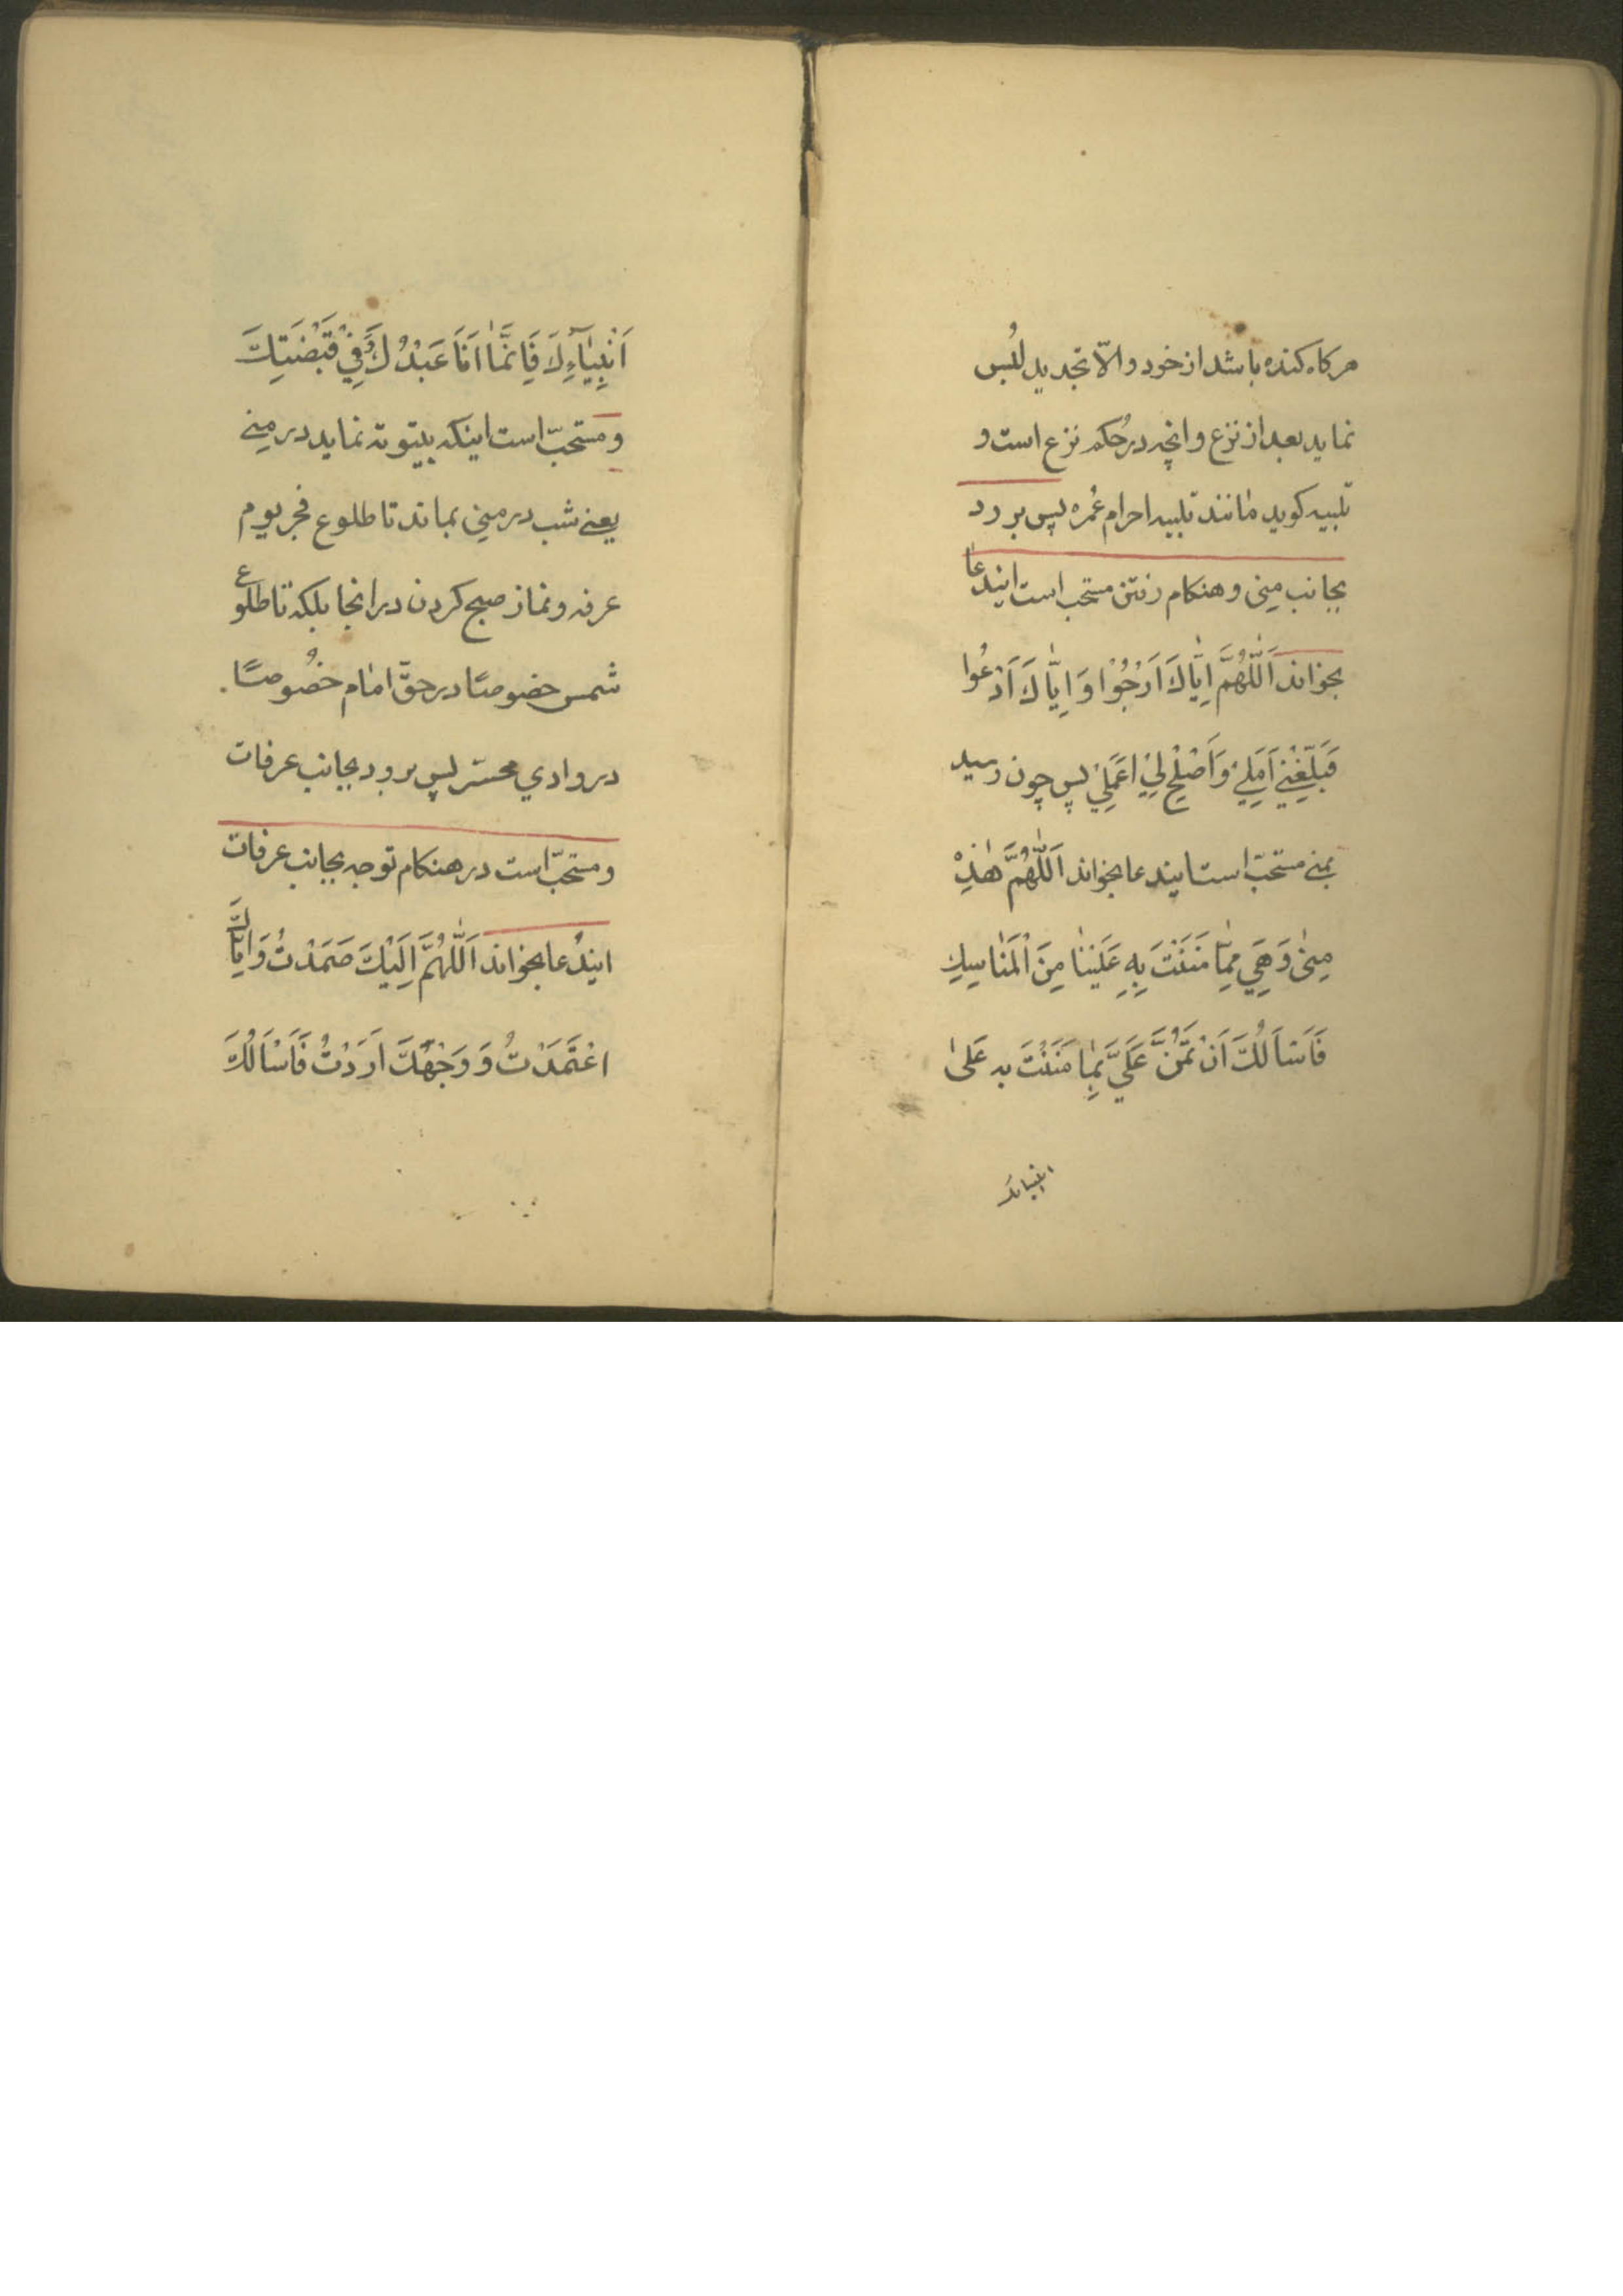 هرکاه کنده باشد از خود و الّا تجدید لُبس
نماید بعد از نزع و انچه در حُکم نزع است و
تلبیه کوید مانند تلبیه احرام عُمره پس برود
بجانب مِنی و هنکام رفتن مستحب است ایندعا
بخواند اَللّٰهُمَّ اِیّٰاكَ اَرْجُوْا وَ اِیّٰاكَ اَدْعُوا
فَبَلِّغْنِيْ اَمَلِيْ وَ اَصْلِحْ لِيْ اعَمَلِيْ پس چون رسید
بمنی مستحبّ است ایندعا بخواند اَللّٰهُمَّ هٰذِهْ
مِنیٰ وَ هِيَ مِمّٰا مَنَنْتَ بِهِ عَلَیْنٰا مِنَ الْمَنٰاسِكِ
فَاَسْاَلُكَ اَنْ تَمُنَّ عَلَيَّ بِمٰا مَنَنْتَ به عَلیٰ
انبیائك
اَنْبِیٰآءِكَ فَاِنَّمٰا اَنَا عَبْدُكَ وَ فِيْ قَبْضَتِكَ
و مستحبّ است اینکه بیتوته نماید در مِنی
یعنی شب در منی بماند تا طلوع فجر یوم
عرفه و نماز صبح کردن در انجا بلکه تا طلوع
شمس خصوصًا در حقّ امٰام خصُوصًا
در وادي محسّر پس برود بجانب عرفات
و مستحبّ است در هنکام توجه بجانب عرفات
ایندُعا بخواند اَللّٰهُمَّ اِلَیْكَ صَمَدْتُ وَ اِیّٰاكَ
اعْتَمَدْتُ وَ وَجْهَكَ اَرَدْتُ فَاَسْاَلُكَ